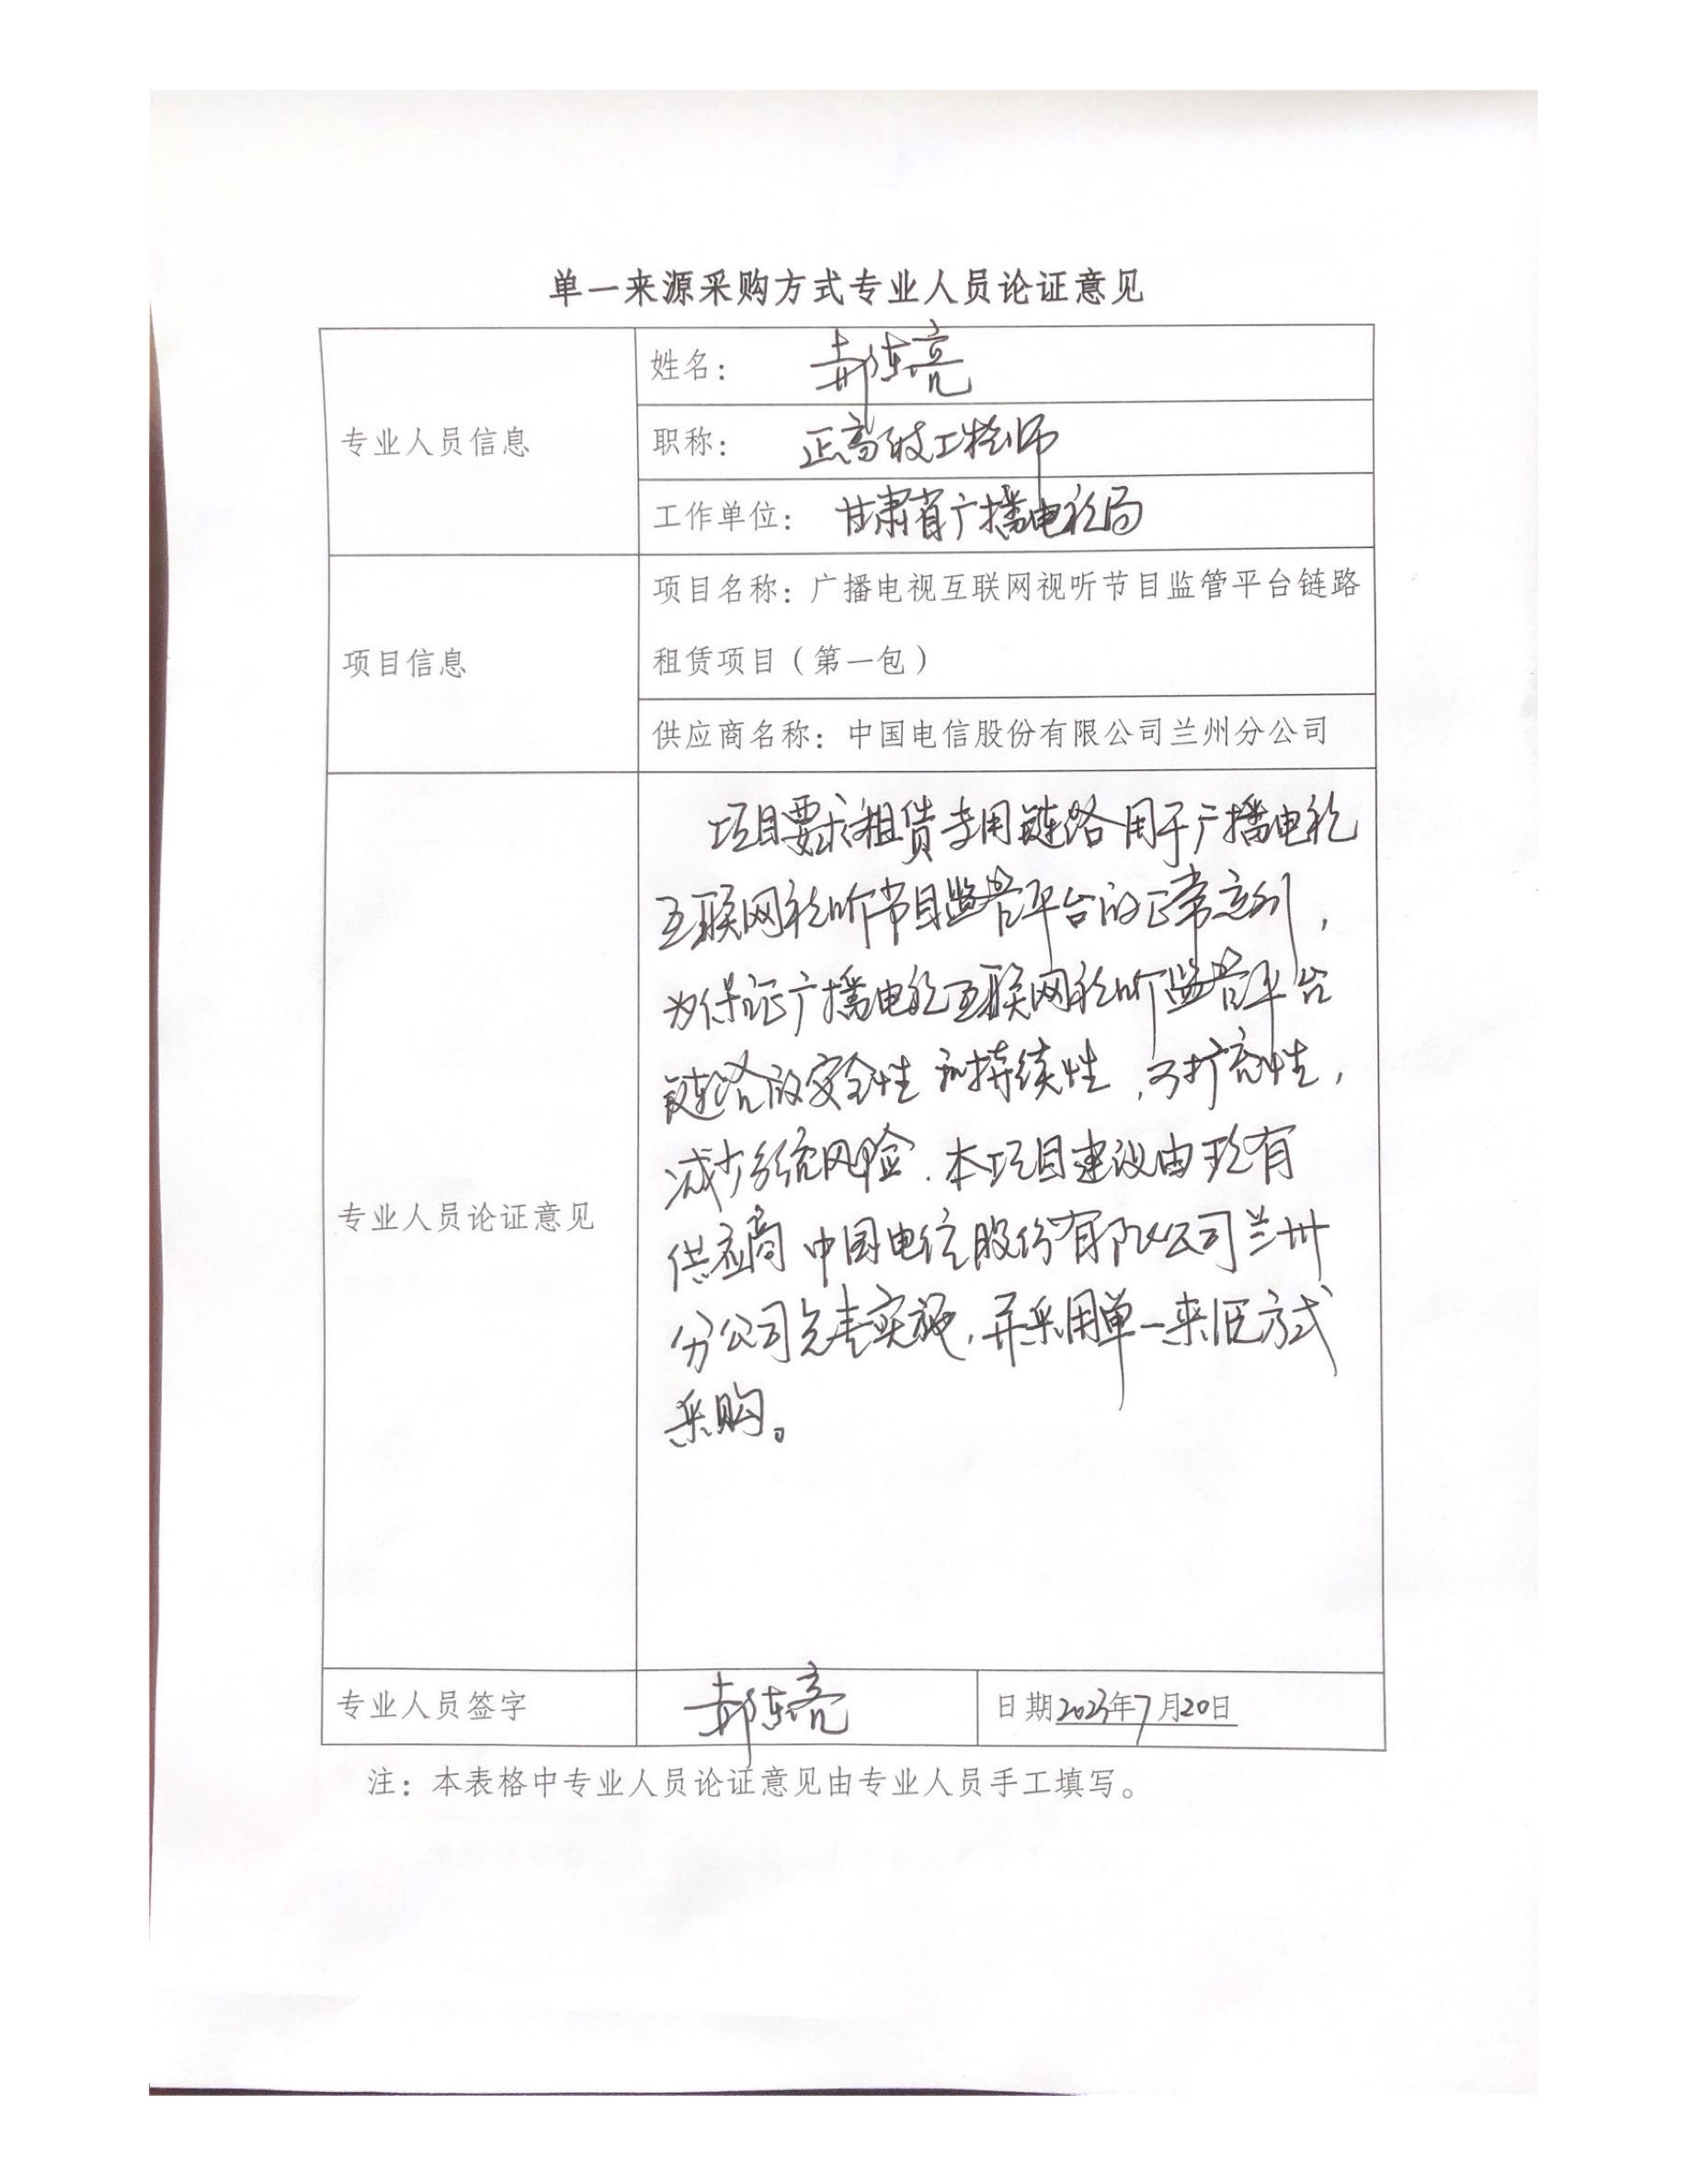 单一来源采购方式专业人员论证意见
专业人员信息
姓名： 郝东亮
职称： 正高级工程师
工作单位： 甘肃省广播电视局
项目信息
项目名称：广播电视互联网视听节目监管平台链路
租赁项目（第一包）
供应商名称：中国电信股份有限公司兰州分公司
专业人员论证意见
项目要求租赁专用链路用于广播电视
互联网视听节目监管平台的正常运行，
为保证广播电视互联网视听监管平台
链路的安全性和持续性，可扩充性，
减少系统风险，本项目建议由现有
供应商中国电信股份有限公司兰州
分公司负责实施，并采用单一来源方式
采购。
专业人员签字
郝东亮
日期2023年7月20日
注：本表格中专业人员论证意见由专业人员手工填写。